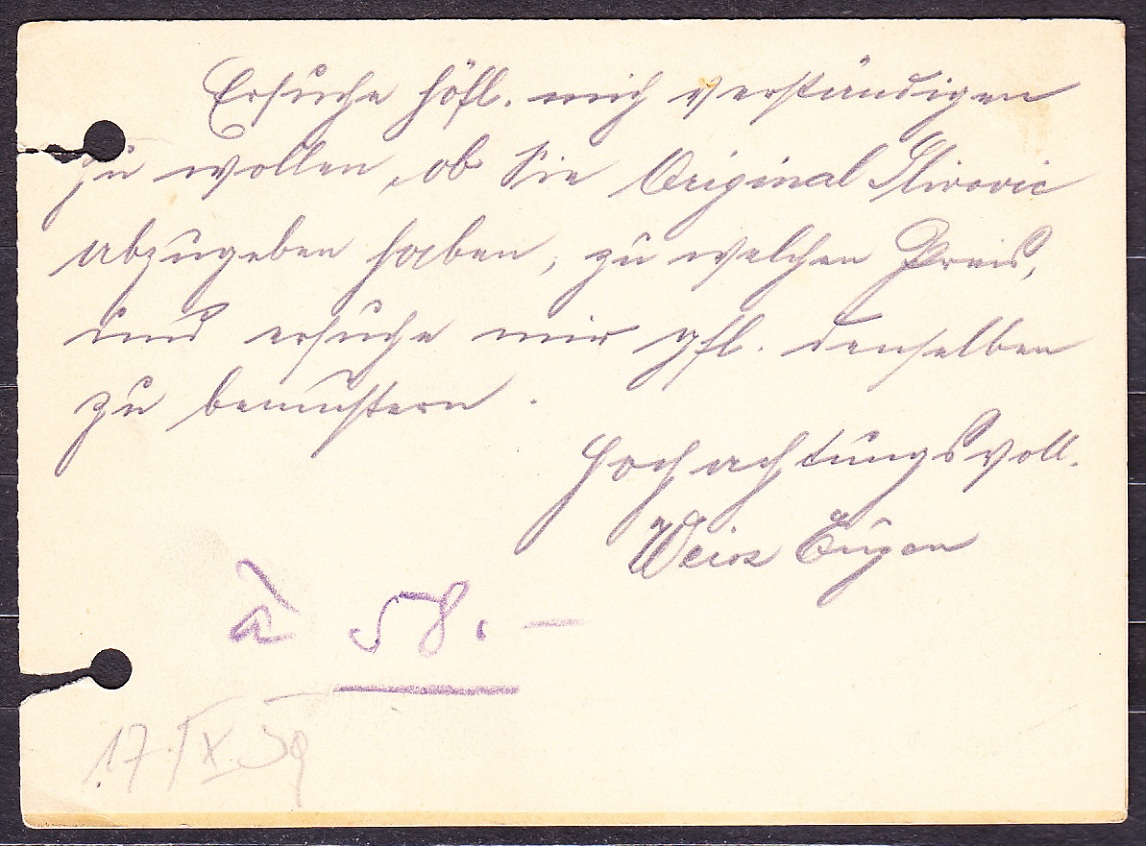 Ersuche höfl. mich verständigen
zu wollen, ob Sie Original Slivovic
abzugeben haben, zu welchen Preis,
und ersuche mir gfl. denselben
zu bemustern.
Hochachtungsvoll.
Weisz Eugen
à 58.—
17.IX.39